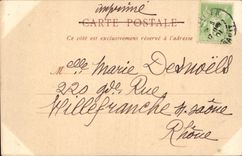 imprimé
CARTE POSTALE
Ce côté est exclusivement réservé à l'adresse
Melle Marie Desnoëls
220 gde Rue
Villefranche s. saône
Rhône